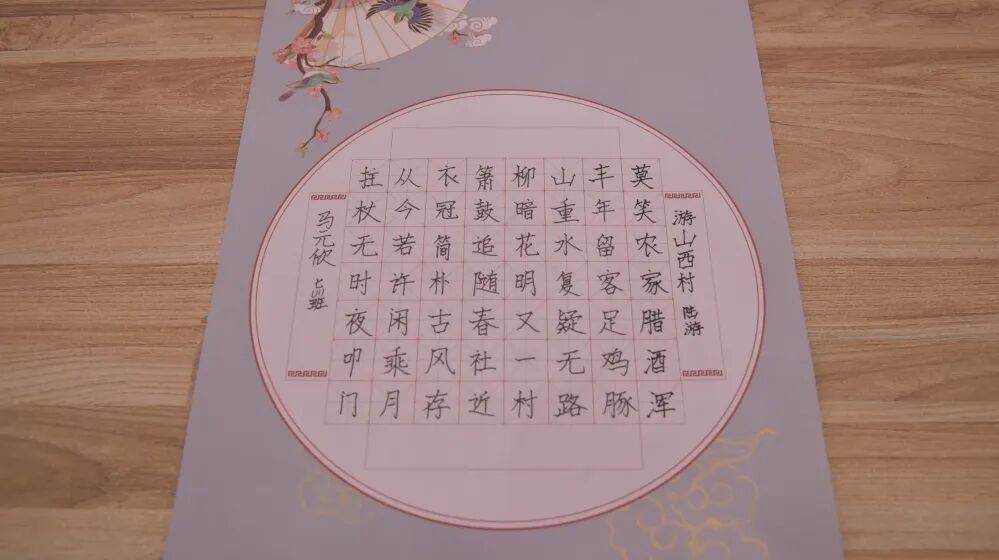 游山西村 陆游
莫笑农家腊酒浑
丰年留客足鸡豚
山重水复疑无路
柳暗花明又一村
箫鼓追随春社近
衣冠简朴古风存
从今若许闲乘月
拄杖无时夜叩门
马元欣